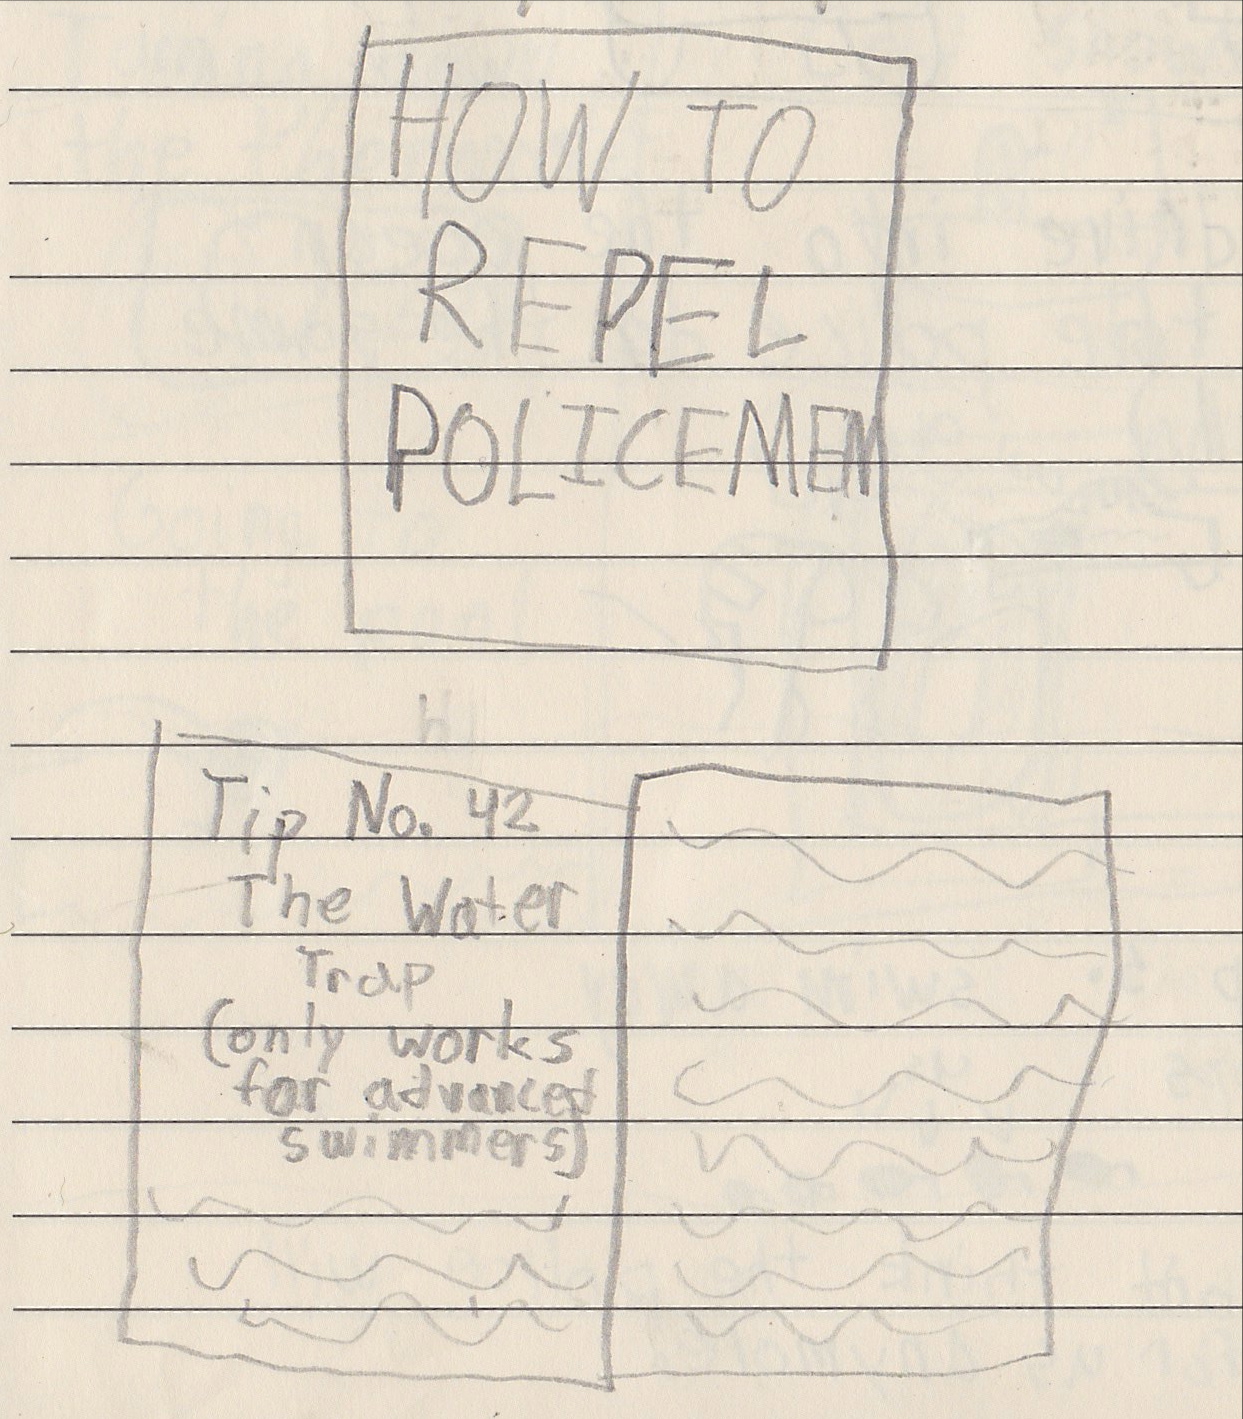 HOW TO
REPEL
POLICEMEN
Tip No. 42
The Water
Trap
(only works
for advanced
swimmers)